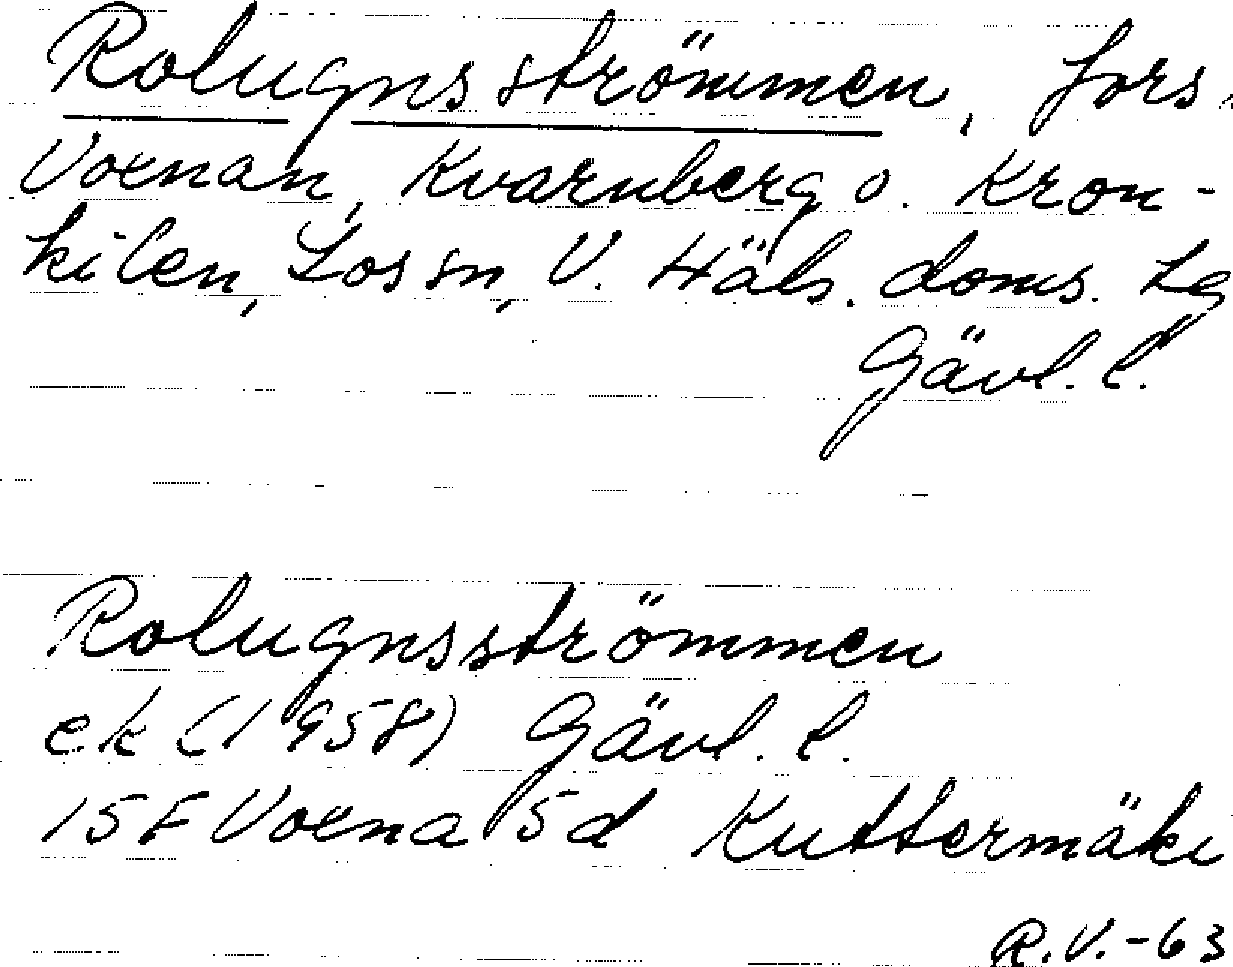 Rolugnsströmmen, fors.
Voxnan, Kvarnberg o. Kron-
kilen, Los sn, V. Häls. doms. Lg
Gävl. l.
Rolugnsströmmen
ek (1958) Gävl. l.
15E Voxna 5d Kuttermäki
R.V.-63